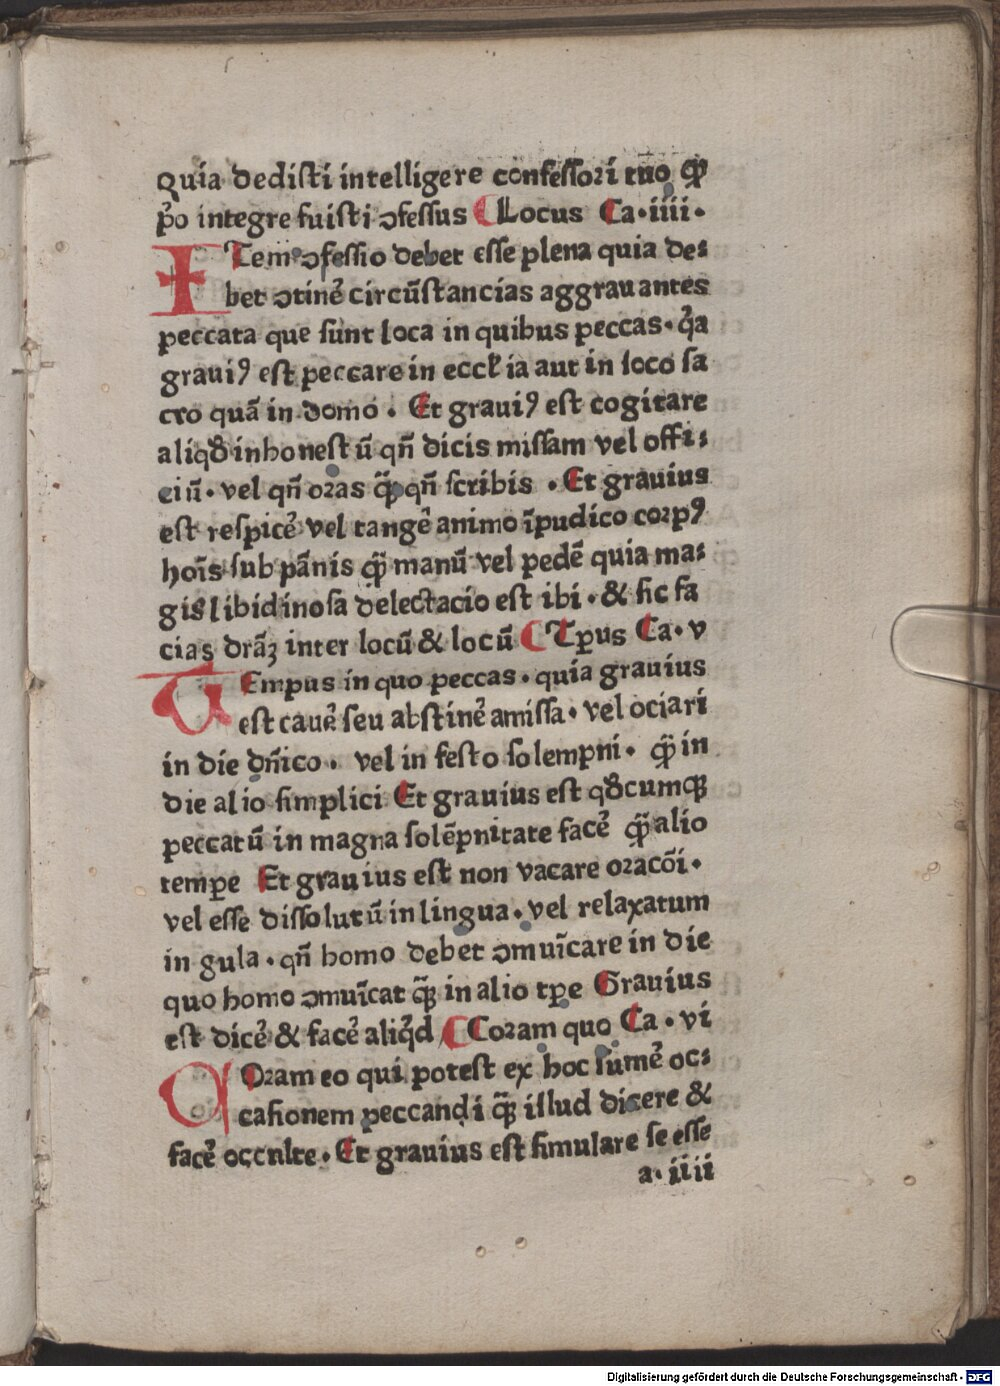 Quia dedisti intelligere confessori tuo ꝙ
p̄o integre fuisti ↄfessus ⸿Locus Ca·iiii·
ITem ↄfessio debet esse plena quia de⸗
bet ↄtinēˀ circūstancias aggrauantes
peccata que sunt loca in quibus peccas·q̄a
grauiꝰ est peccare in eccl̄ia aut in loco sa
cro quā in domo · Et grauiꝰ est cogitare
aliqđ inhonestū qn̄ dicis missam vel offi⸗
ciū·vel qn̄ oras ꝙ̄ qn̄ scribis ·Et grauius
est respicē vel tangē animo īpudico corpꝰ
hoīs sub pānis ꝙ̄ manū vel pedē quia ma⸗
gis libidinosa delectacio est ibi·& sic fa
cias drāꝫ inter locū & locū ⸿Tꝑus Ca·v
TEmpus in quo peccas·quia grauius
est cauē seu abstinē amissa·vel ociari
in die dn̄ico· vel in festo solempni· ꝙ̄ in
die alio simplici Et grauius est qđcumqꝫ
peccatū in magna solēpnitate facē ꝙ̄ alio
tempe Et grauius est non vacare oracōi·
vel esse dissolutū in lingua·vel relaxatum
in gula·qn̄ homo debet ↄmuīcare in die
quo homo ↄmuīcat ꝙ̄ in alio tꝑe Grauius
est dicē & facē aliq̄d ⸿Coram quo Ca·vi
COram eo qui potest ex hoc sumē oc⸗
casionem peccandi ꝙ̄ illud dicere &
facē occulte·Et grauius est simulare se esse
a·iiii
Digitalisierung gefördert durch die Deutsche Forschungsgemeinschaft - DFG